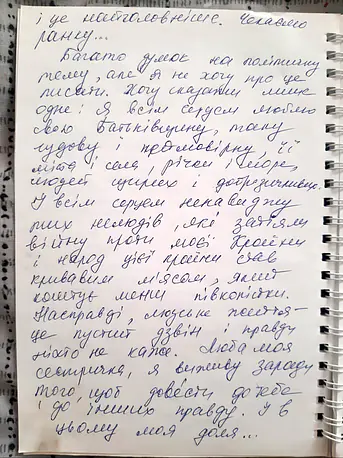 і це найголовніше. Чекаємо
ранку...
Багато думок на політичну
тему, але я не хочу про це
писати. Хочу сказати лише
одне: Я всім серцем люблю
свою Батьківщину, таку
чудову і неймовірну, її
міста і села, річки і море,
людей щирих і доброзичливих.
І всім серцем ненавиджу
тих нелюдів, які затіяли
війну проти моєї країни
і народ цієї країни став
кривавим м'ясом, який
коштує менш півкопійки.
Насправді, людське життя-
це пустий дзвін і правду
ніхто не каже. Люба моя
сестричка, я виживу заради
того, щоб довести до тебе
і до інших правду. І в
цьому моя доля...